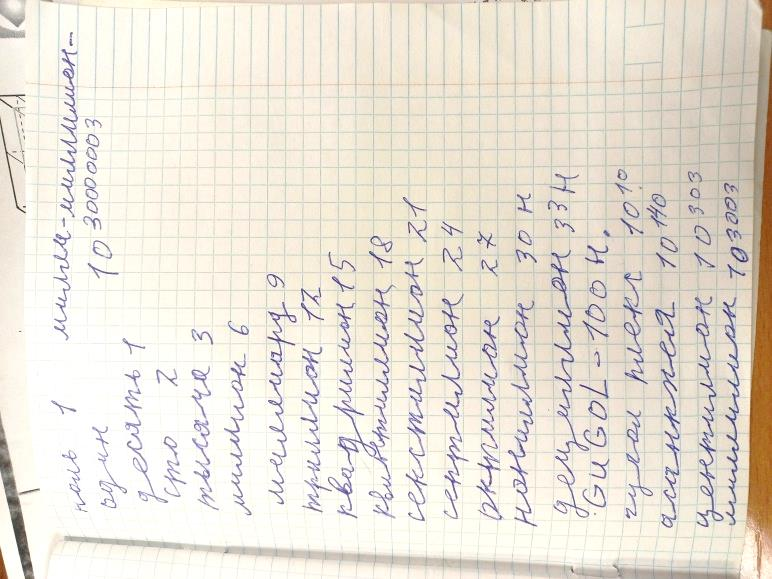 ноль 1
один
десять 1
сто 2
тысяча 3
миллион 6
миллиард 9
триллион 12
квадриллион 15
квинтиллион 18
секстиллион 21
септиллион 24
октиллион 27
нониллион 30 н
дециллион 33 н
GUGOL = 100 н.
гугол плекс 10¹⁰
асанкхея 10 140
центиллион 10 303
миллиллион 10 3003
10 30000003